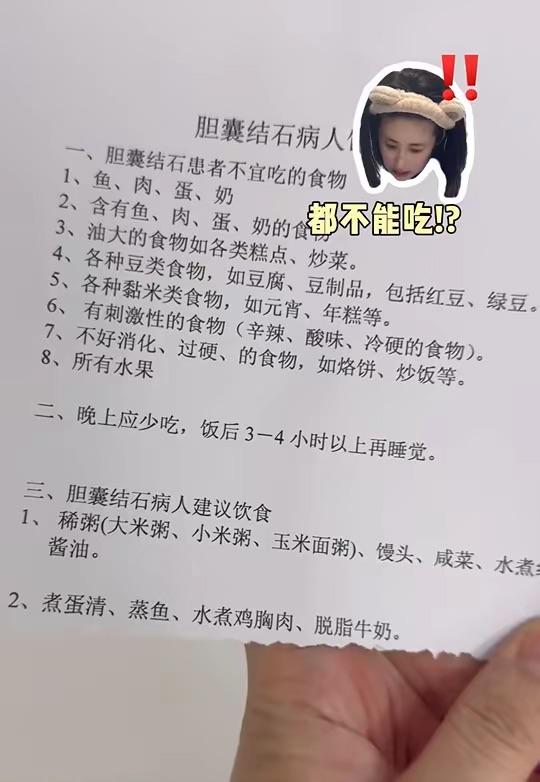 胆囊结石病人
!!
都不能吃!?
一、胆囊结石患者不宜吃的食物
1、鱼、肉、蛋、奶
2、含有鱼、肉、蛋、奶的食物
3、油大的食物如各类糕点、炒菜。
4、各种豆类食物，如豆腐、豆制品，包括红豆、绿豆。
5、各种黏米类食物，如元宵、年糕等。
6、有刺激性的食物（辛辣、酸味、冷硬的食物）。
7、不好消化、过硬、的食物，如烙饼、炒饭等。
8、所有水果
二、晚上应少吃，饭后3－4小时以上再睡觉。
三、胆囊结石病人建议饮食
1、稀粥(大米粥、小米粥、玉米面粥)、馒头、咸菜、水煮
酱油。
2、煮蛋清、蒸鱼、水煮鸡胸肉、脱脂牛奶。